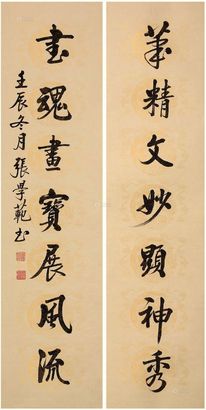 筆精文妙顯神秀
書魂畫寶展風流
壬辰冬月張學範書